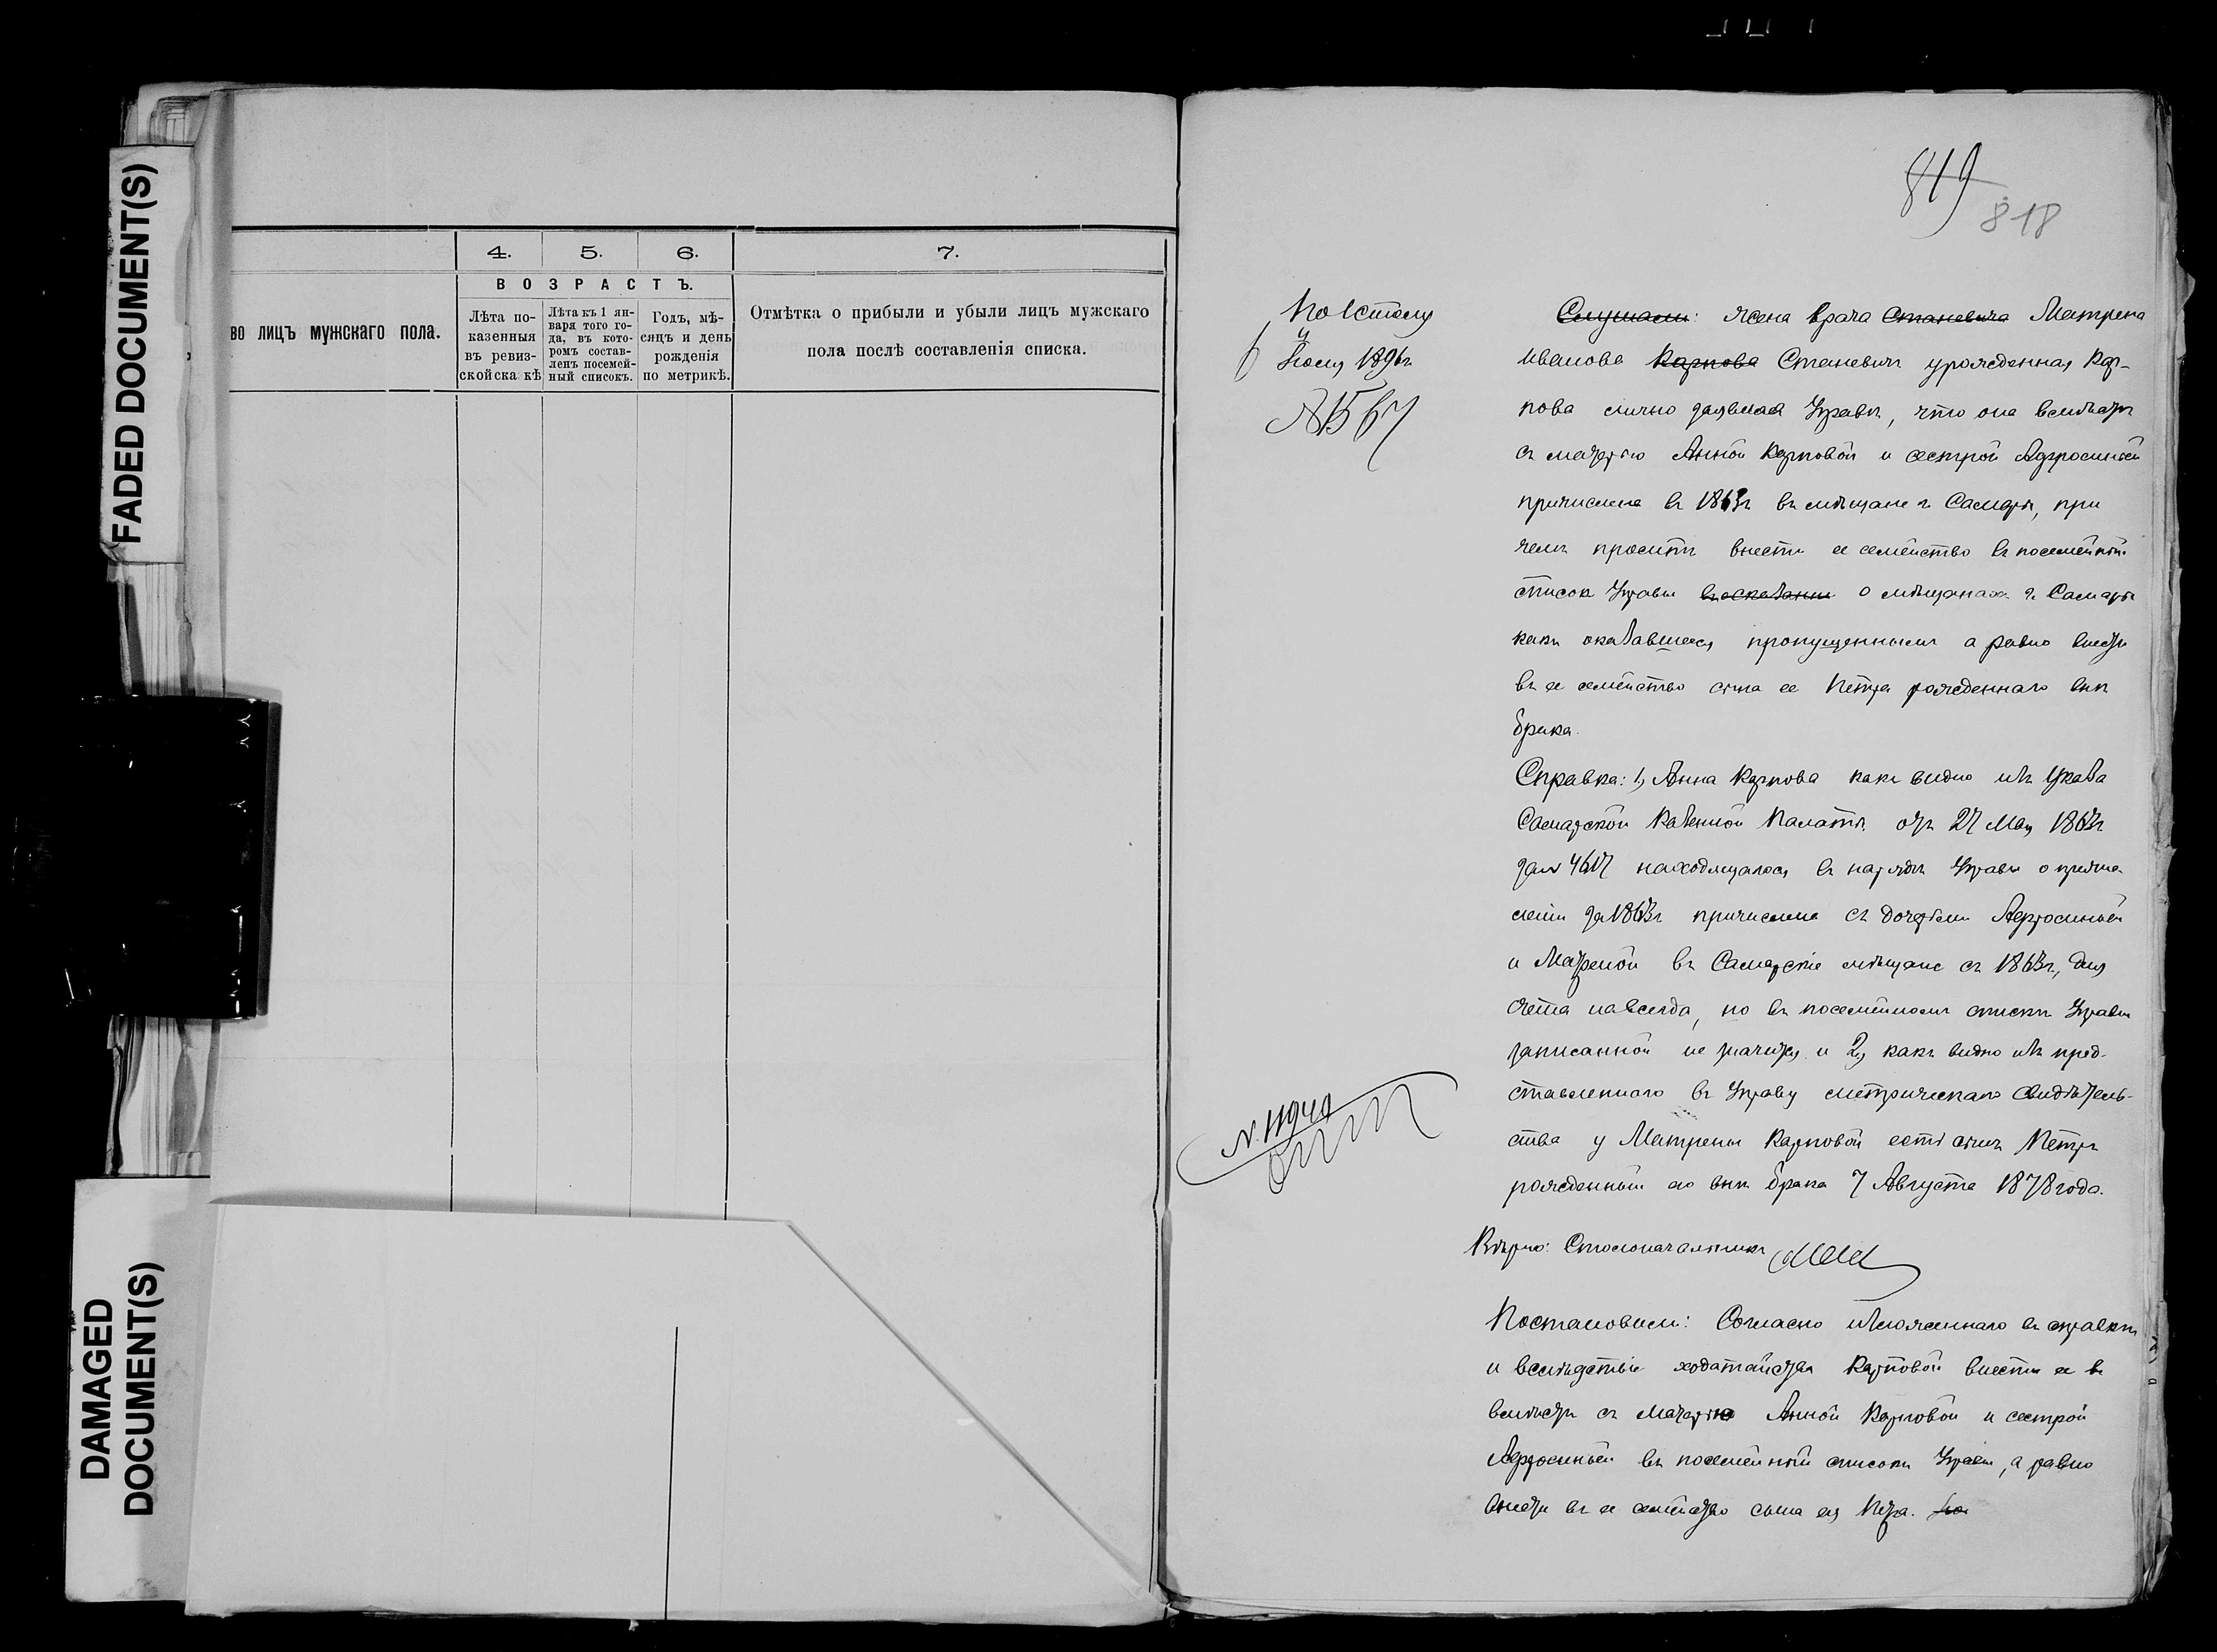 FADED DOCUMENT(S)
DAMAGED
DOCUMENT(S)
4. 5. 6. 7.
ВОЗРАСТЪ.
во лицъ мужскаго пола.
Лѣта по-
казенныя
въ ревиз-
ской сказкѣ
Лѣта къ 1 ян-
варя того го-
да, въ кото-
ромъ состав-
ленъ посемей-
ный списокъ.
Годъ, мѣ-
сяцъ и день
рожденія
по метрикѣ.
Отмѣтка о прибыли и убыли лицъ мужскаго
пола послѣ составленія списка.
819
818
По 1 столу
6 Іюня 1896 г.
№ 1567
Слушали: жена врача Становича Матрена
Иванова Карпова Станевичъ урожденная Кар-
пова лично заявила Управѣ, что она вмѣстѣ
съ матерью Анной Карповой и сестрой Афросиньей
причислена въ 1863 г въ мѣщане г. Самары, при
чемъ проситъ внести ее семейство въ посемейный
список Управы о мѣщанахъ г. Самары
какъ оказавшееся пропущеннымъ а равно внести
въ ее семейство сына ее Петра рожденнаго внѣ
брака.
Справка: 1) Анна Карпова какъ видно изъ Указа
Самарской Казенной Палаты отъ 27 Мая 1863 г
за № 4617 находящагося въ нарядѣ Управы о причи-
сленіи за 1863 г причислена съ дочерьми Афросиньей
и Матреной въ Самарскіе мѣщане съ 1863 г, для
счета навсегда, но въ посемейномъ спискѣ Управы
записанной не значится и 2) какъ видно изъ пред-
ставленнаго въ Управу метрическаго свидѣтель-
ства у Матрены Карповой есть сынъ Петръ
рожденный ею внѣ брака 7 Августа 1878 года.
N. 11949
Вѣрно: Столоначальникъ
Постановили: Согласно изложеннаго въ справкѣ
и вслѣдствіе ходатайства Карповой внести ее въ
вмѣстѣ съ матерью Анной Карповой и сестрой
Афросиньей въ посемейный списокъ Управы, а равно
внести въ ее семейство сына ея Петра.